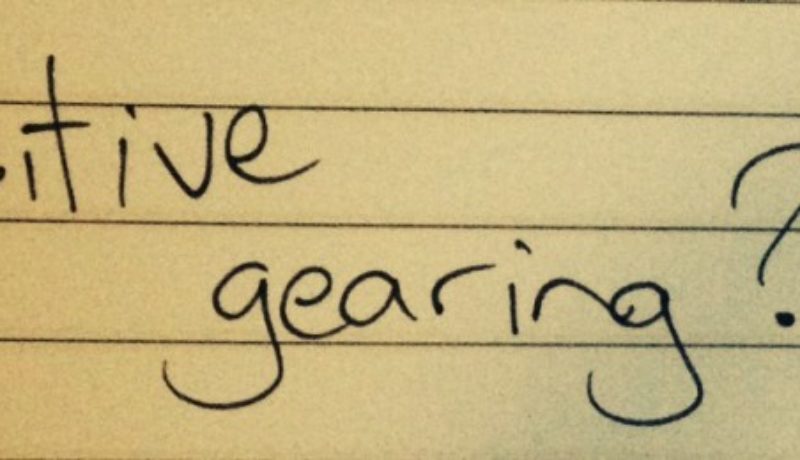 itive
gearing?